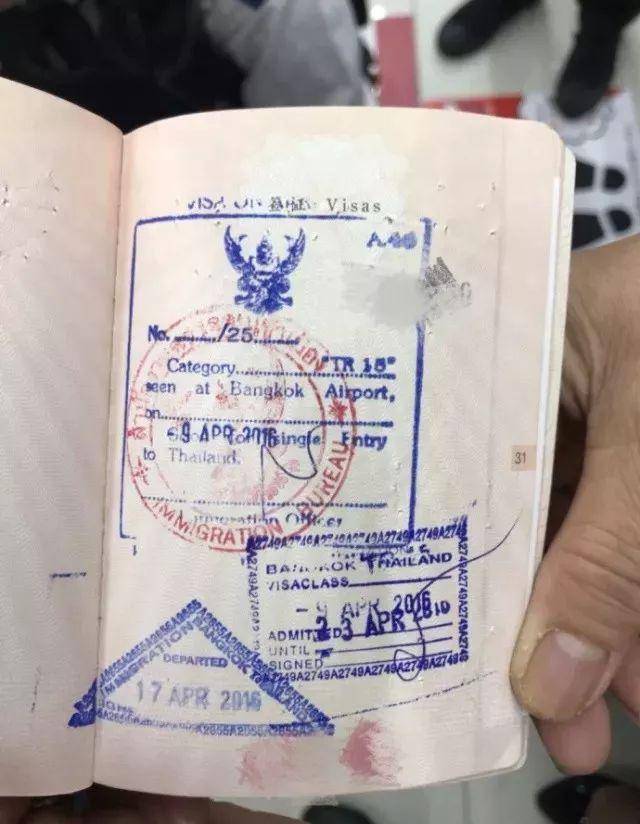 Visas
A.46
No. ......../25........
Category........ "TR 15"
seen at Bangkok Airport,
on
- 9 APR 2016 single Entry
to Thailand.
IMMIGRATION BUREAU
Immigration Officer
31
A2749A2749A2749A2749A2749A2749A2749
BANGKOK THAILAND
VISACLASS
- 9 APR 2016
ADMITTED 23 APR 2016
UNTIL
SIGNED
2749A2749A2749A2749A2749A2749
IMMIGRATION BANGKOK THAILAND
DEPARTED
17 APR 2016